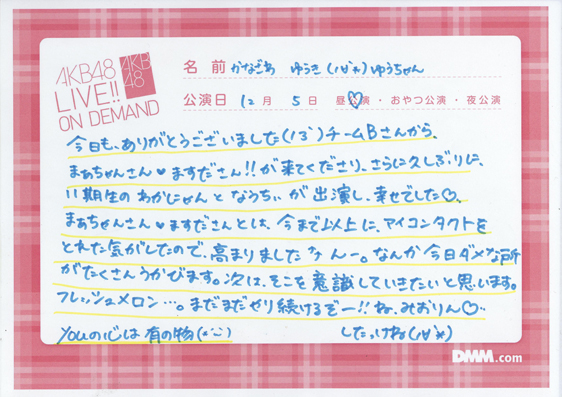 AKB48
LIVE!!
ON DEMAND
AKB
48
名 前 かなざわ ゆうき (ハ'∀'*) ゆうちゃん
公演日 12月 5日 昼公演・おやつ公演・夜公演
今日も、ありがとうございました(ノ3`)チームBさんから、
まぁちゃんさん♥ますださん!!が来てくださり、さらに久しぶりに、
11期生のわかにゃんとなうちぃが出演し、幸せでした♡。
まぁちゃんさん♥ますださんとは、今まで以上に、アイコンタクトを
とれた気がしたので、高まりましたなんー。なんか今日ダメな所
がたくさんうかびます。次は、そこを意識していきたいと思います。
フレッシュメロン…。まだまだやり続けるぞー!!ね、みおりん♡…
youの心は有の物(*¨)
したっけね(ハ'∀'*)
DMM.com